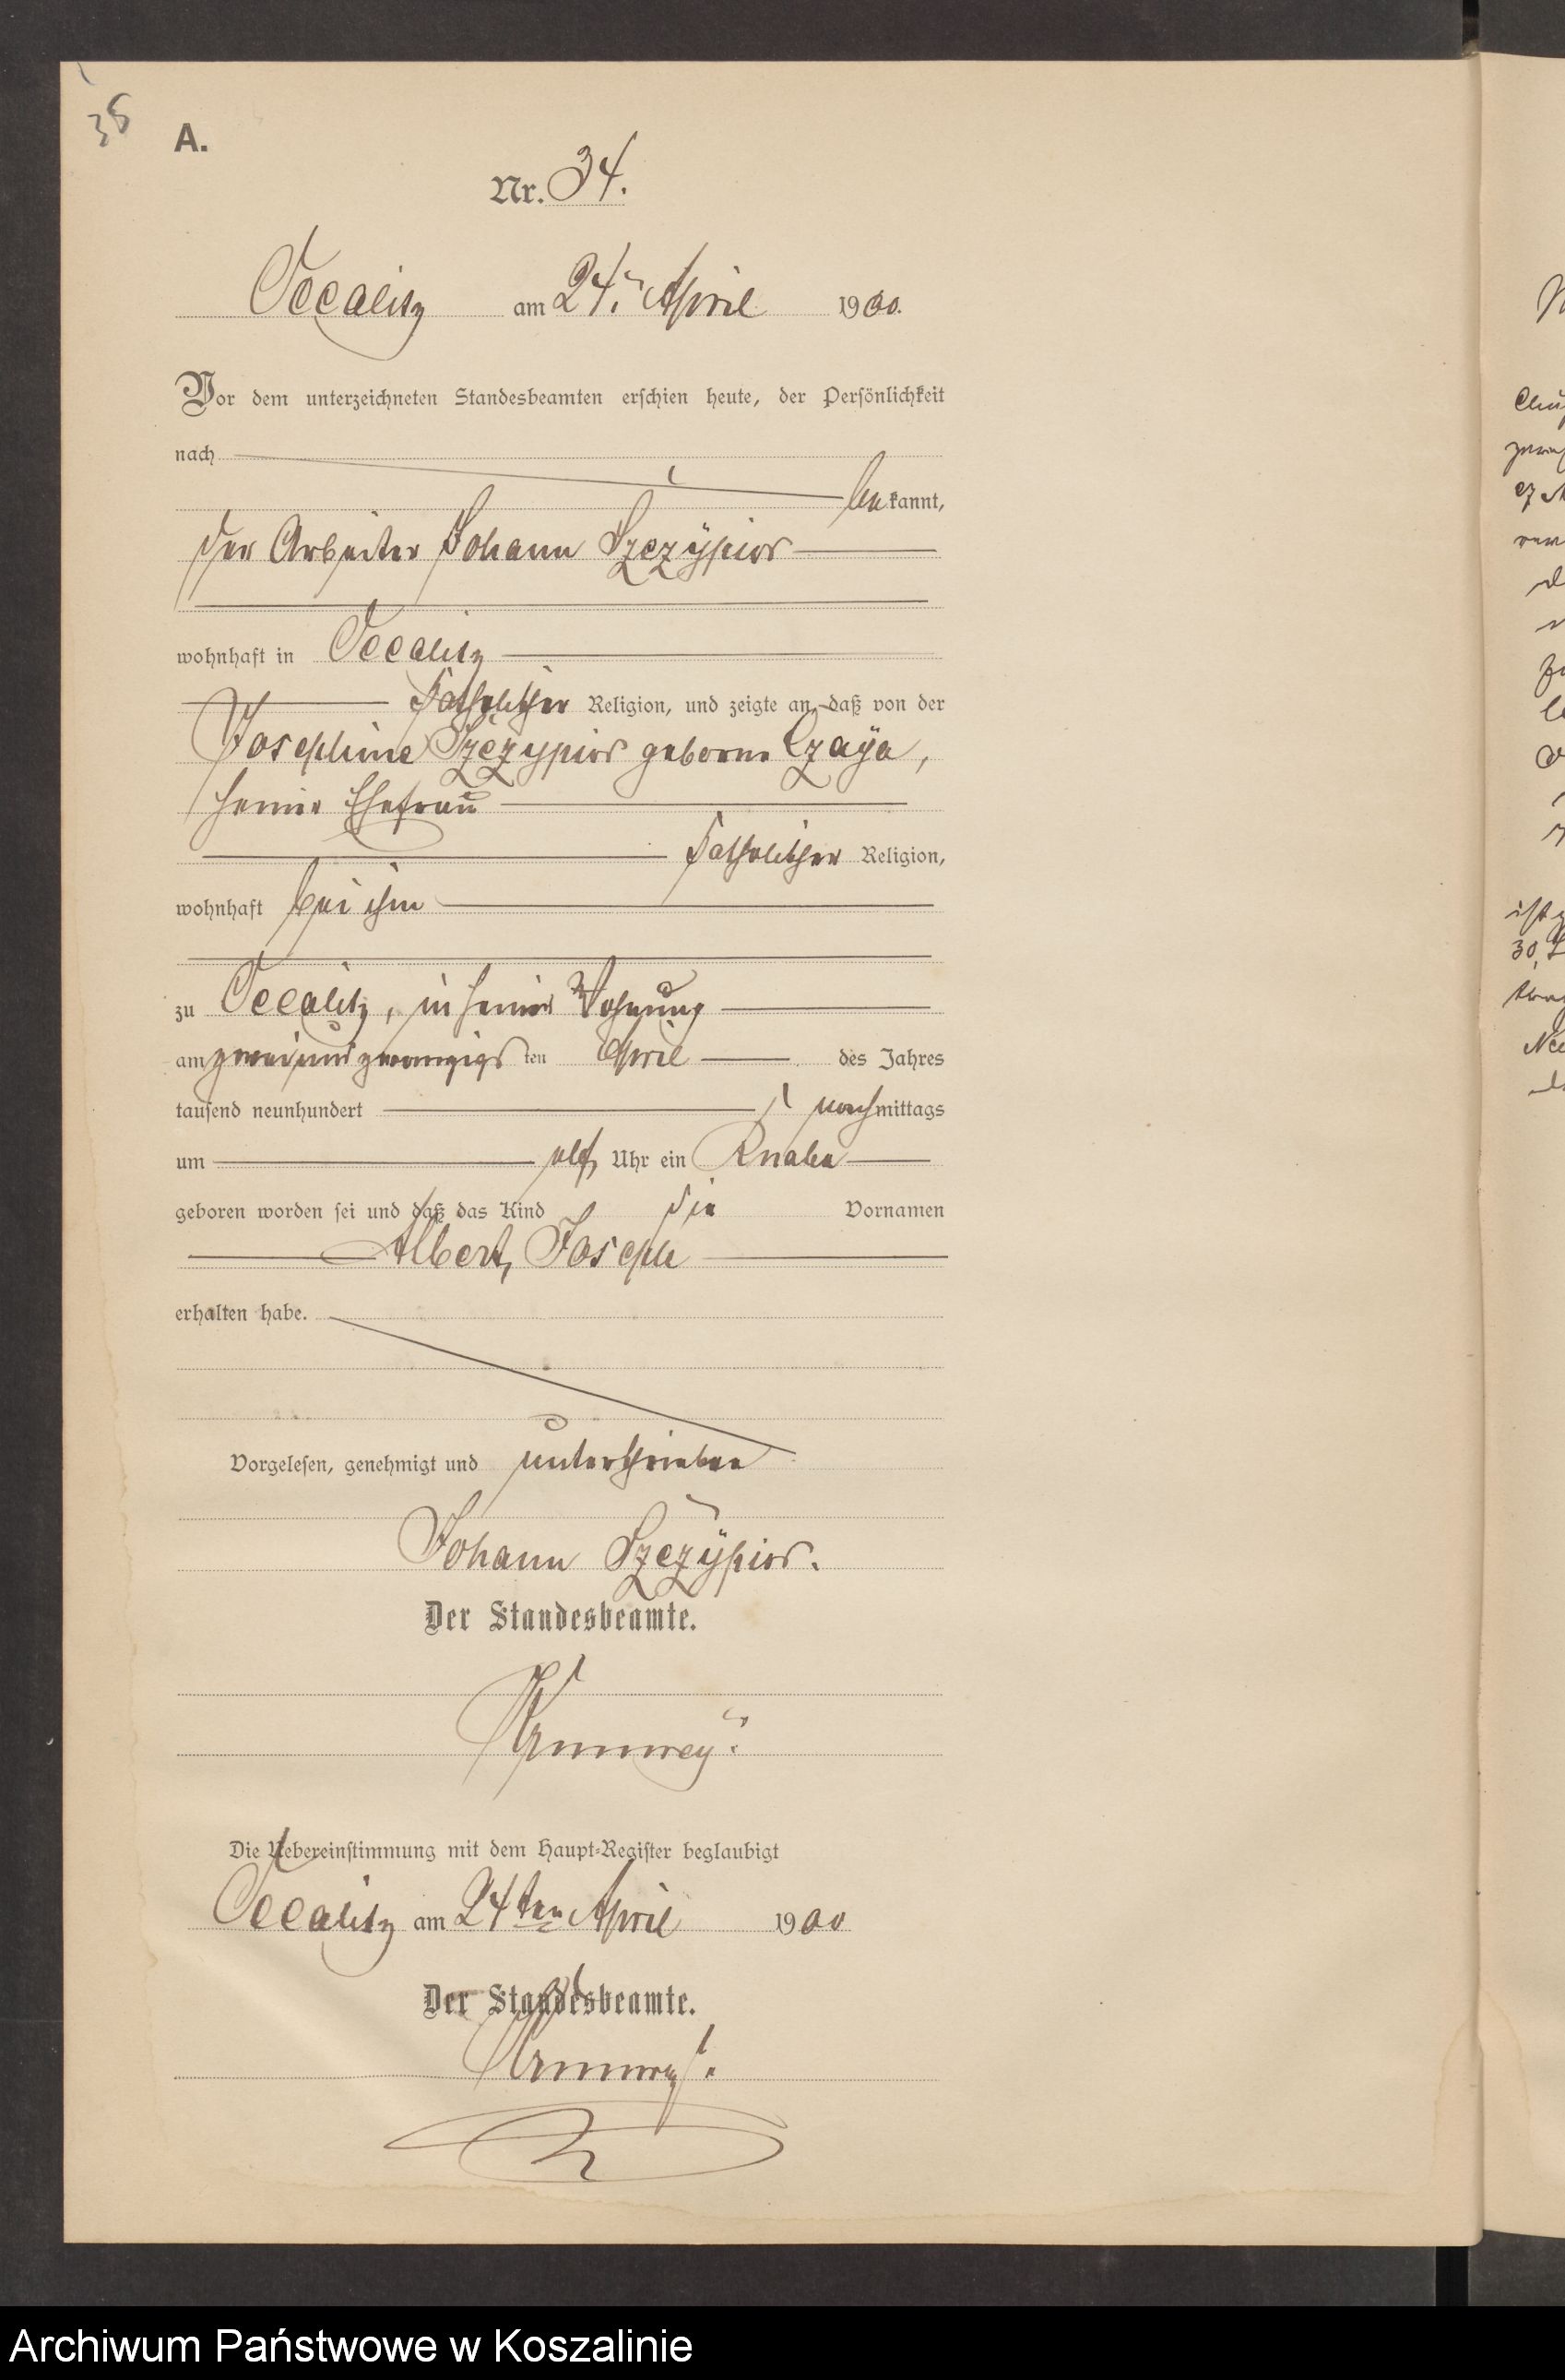 38
A.
Nr. 34.
Occalitz am 24. April 1900.
Vor dem unterzeichneten Standesbeamten erschien heute, der Persönlichkeit
nach
bekannt,
der Arbeiter Johann Szczÿpior
wohnhaft in Occalitz
katholischer Religion, und zeigte an, daß von der
Josephine Szczypior geborne Czaÿa,
seiner Ehefrau
katholischer Religion,
wohnhaft bei ihm
zu Occalitz, in seiner Wohnung
am zweiundzwanzigsten April des Jahres
tausend neunhundert nachmittags
um elf Uhr ein Knabe
geboren worden sei und daß das Kind die Vornamen
Albert, Joseph
erhalten habe.
Vorgelesen, genehmigt und unterschrieben
Johann Szczÿpior.
Der Standesbeamte.
Die Uebereinstimmung mit dem Haupt-Register beglaubigt
Occalitz am 24ten April 1900
Der Standesbeamte.
Archiwum Państwowe w Koszalinie